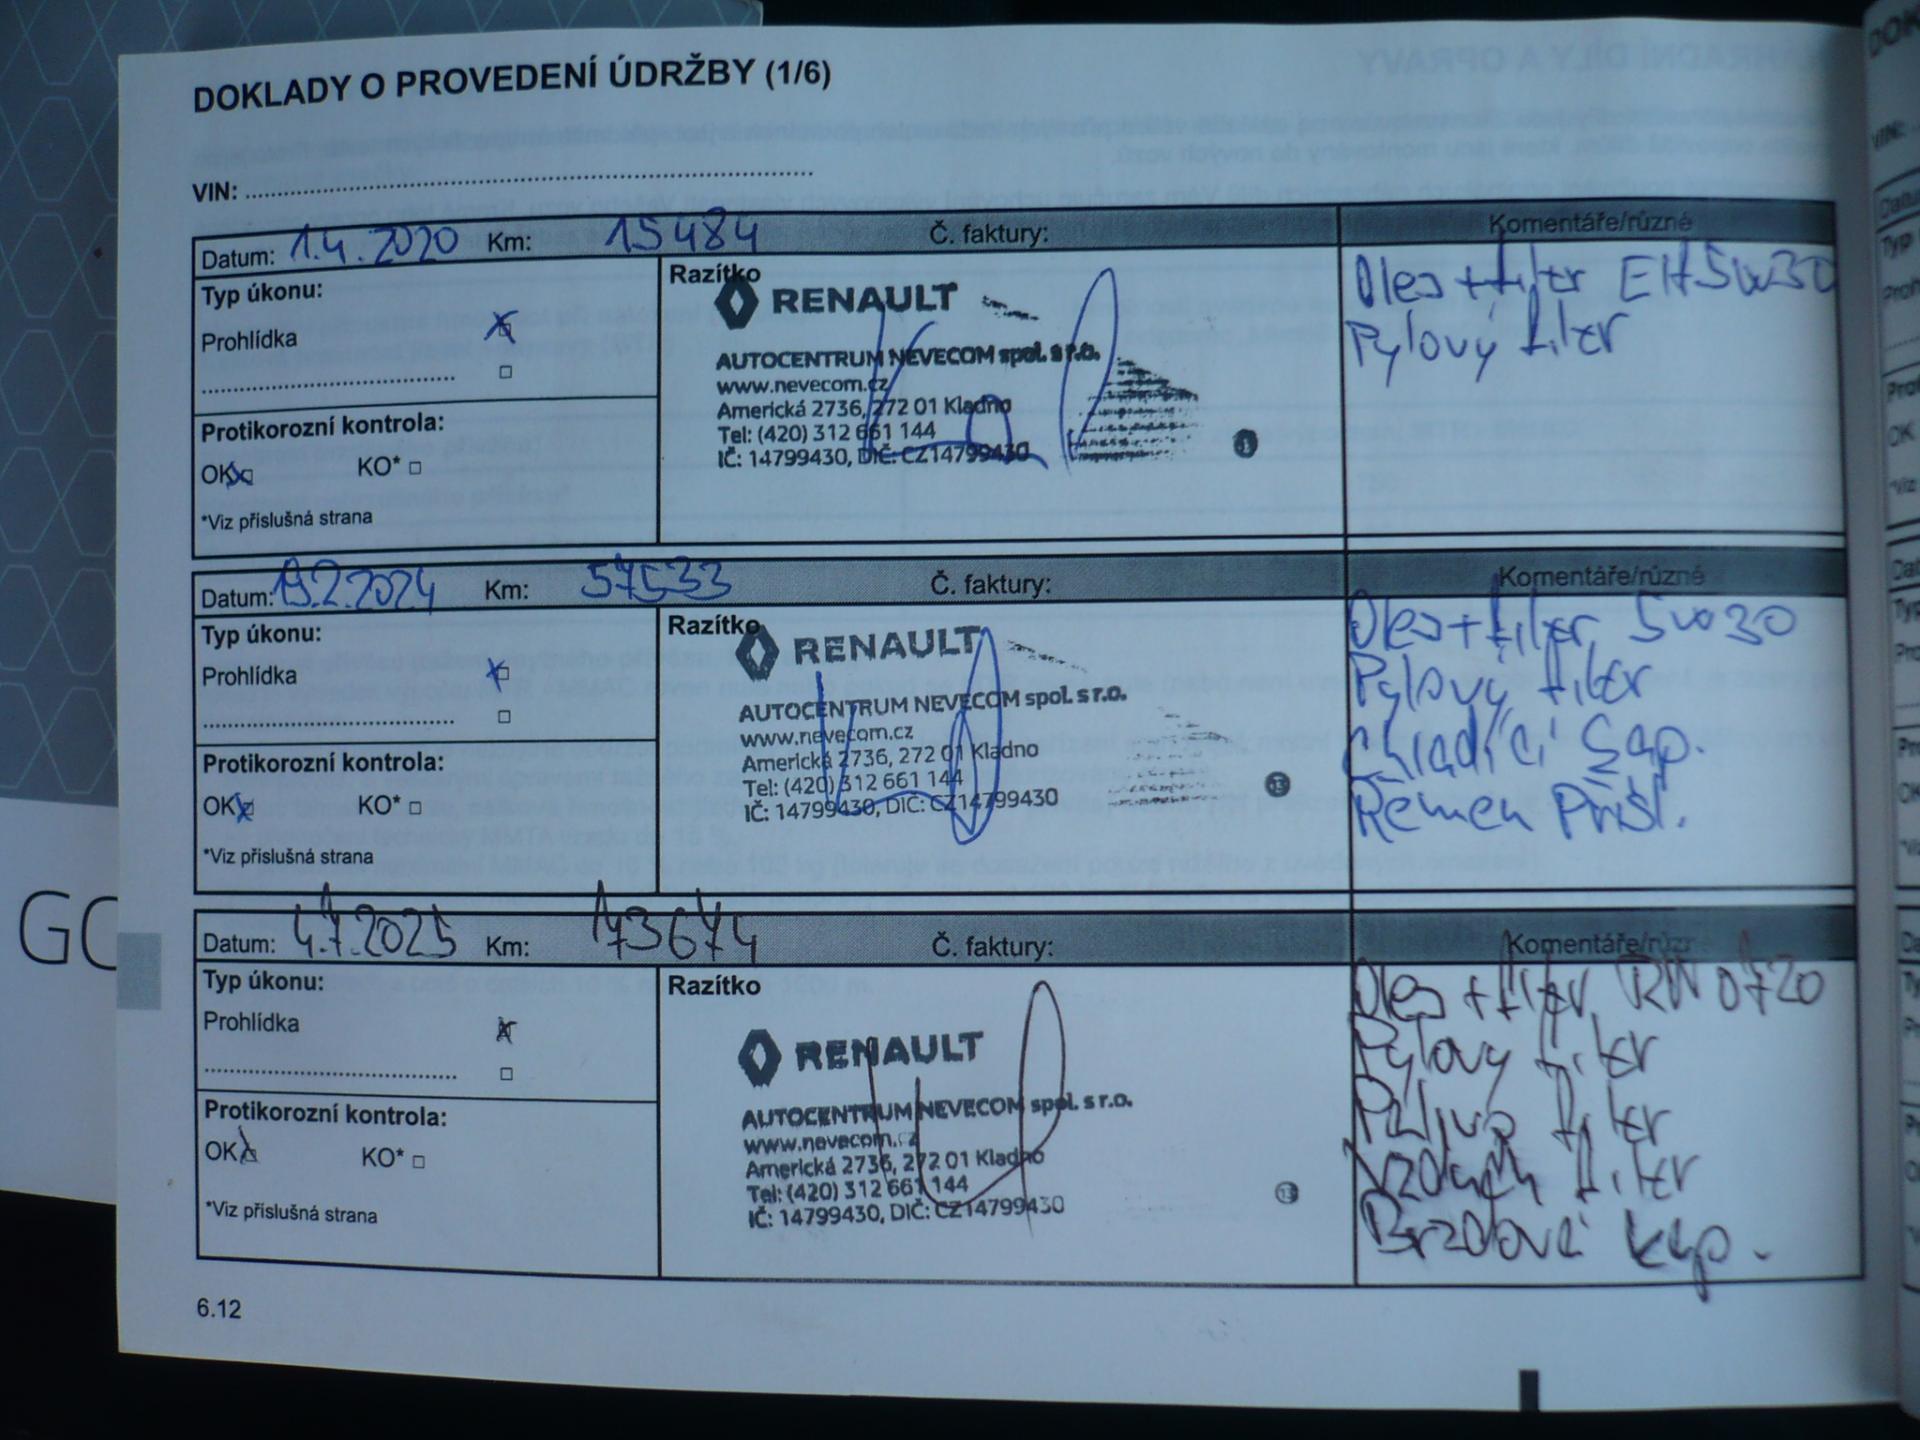 DOKLADY O PROVEDENÍ ÚDRŽBY (1/6)
VIN:
Datum: 1.4.2020 Km: 15484 Č. faktury: Komentáře/různé
Typ úkonu:
Prohlídka
Protikorozní kontrola:
OK KO*
*Viz příslušná strana
Razítko
RENAULT
AUTOCENTRUM NEVECOM spol. s r.o.
www.nevecom.cz
Americká 2736, 272 01 Kladno
Tel: (420) 312 661 144
IČ: 14799430, DIČ: CZ14799430
Olej + filtr E145W30
Pylový filtr
Datum: 19.2.2024 Km: 57533 Č. faktury: Komentáře/různé
Typ úkonu:
Prohlídka
Protikorozní kontrola:
OK KO*
*Viz příslušná strana
Razítko
RENAULT
AUTOCENTRUM NEVECOM spol. s r.o.
www.nevecom.cz
Americká 2736, 272 01 Kladno
Tel: (420) 312 661 144
IČ: 14799430, DIČ: CZ14799430
Olej + filtr 5w30
Pylový filtr
chladící kap.
Řemen Přísl.
Datum: 4.7.2025 Km: 73674 Č. faktury: Komentáře/různ
Typ úkonu:
Prohlídka
Protikorozní kontrola:
OK KO*
*Viz příslušná strana
Razítko
RENAULT
AUTOCENTRUM NEVECOM spol. s r.o.
www.nevecom.cz
Americká 2736, 272 01 Kladno
Tel: (420) 312 661 144
IČ: 14799430, DIČ: CZ14799430
Olej + filtr RN0720
Pylový filtr
Palivo filtr
Vzduch filtr
Brzdová kap.
6.12
GO